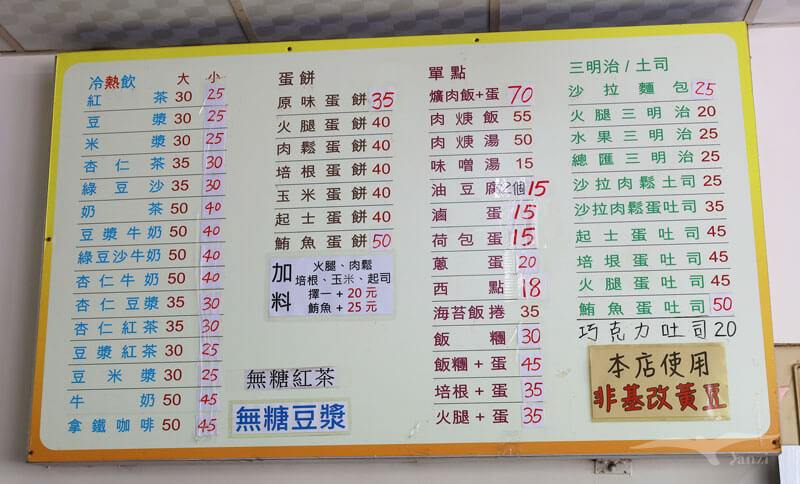 冷熱飲 大 小
紅茶 30 25
豆漿 30 25
米漿 30 25
杏仁茶 35 30
綠豆沙 35 30
奶茶 50 40
豆漿牛奶 50 40
綠豆沙牛奶 50 40
杏仁牛奶 50 40
杏仁豆漿 35 30
杏仁紅茶 35 30
豆漿紅茶 30 25
豆米漿 30 25
牛奶 50 45
拿鐵咖啡 50 45
蛋餅
原味蛋餅 35
火腿蛋餅 40
肉鬆蛋餅 40
培根蛋餅 40
玉米蛋餅 40
起士蛋餅 40
鮪魚蛋餅 50
加料
火腿、肉鬆
培根、玉米、起司
擇一 + 20 元
鮪魚 + 25 元
無糖紅茶
無糖豆漿
單點
爌肉飯+蛋 70
肉焿飯 55
肉焿湯 50
味噌湯 15
油豆腐 2個 15
滷蛋 15
荷包蛋 15
蔥蛋 20
西點 18
海苔飯捲 35
飯糰 30
飯糰+蛋 45
培根+蛋 35
火腿+蛋 35
三明治/土司
沙拉麵包 25
火腿三明治 20
水果三明治 25
總匯三明治 25
沙拉肉鬆土司 25
沙拉肉鬆蛋吐司 35
起士蛋吐司 45
培根蛋吐司 45
火腿蛋吐司 45
鮪魚蛋吐司 50
巧克力吐司 20
本店使用
非基改黃豆